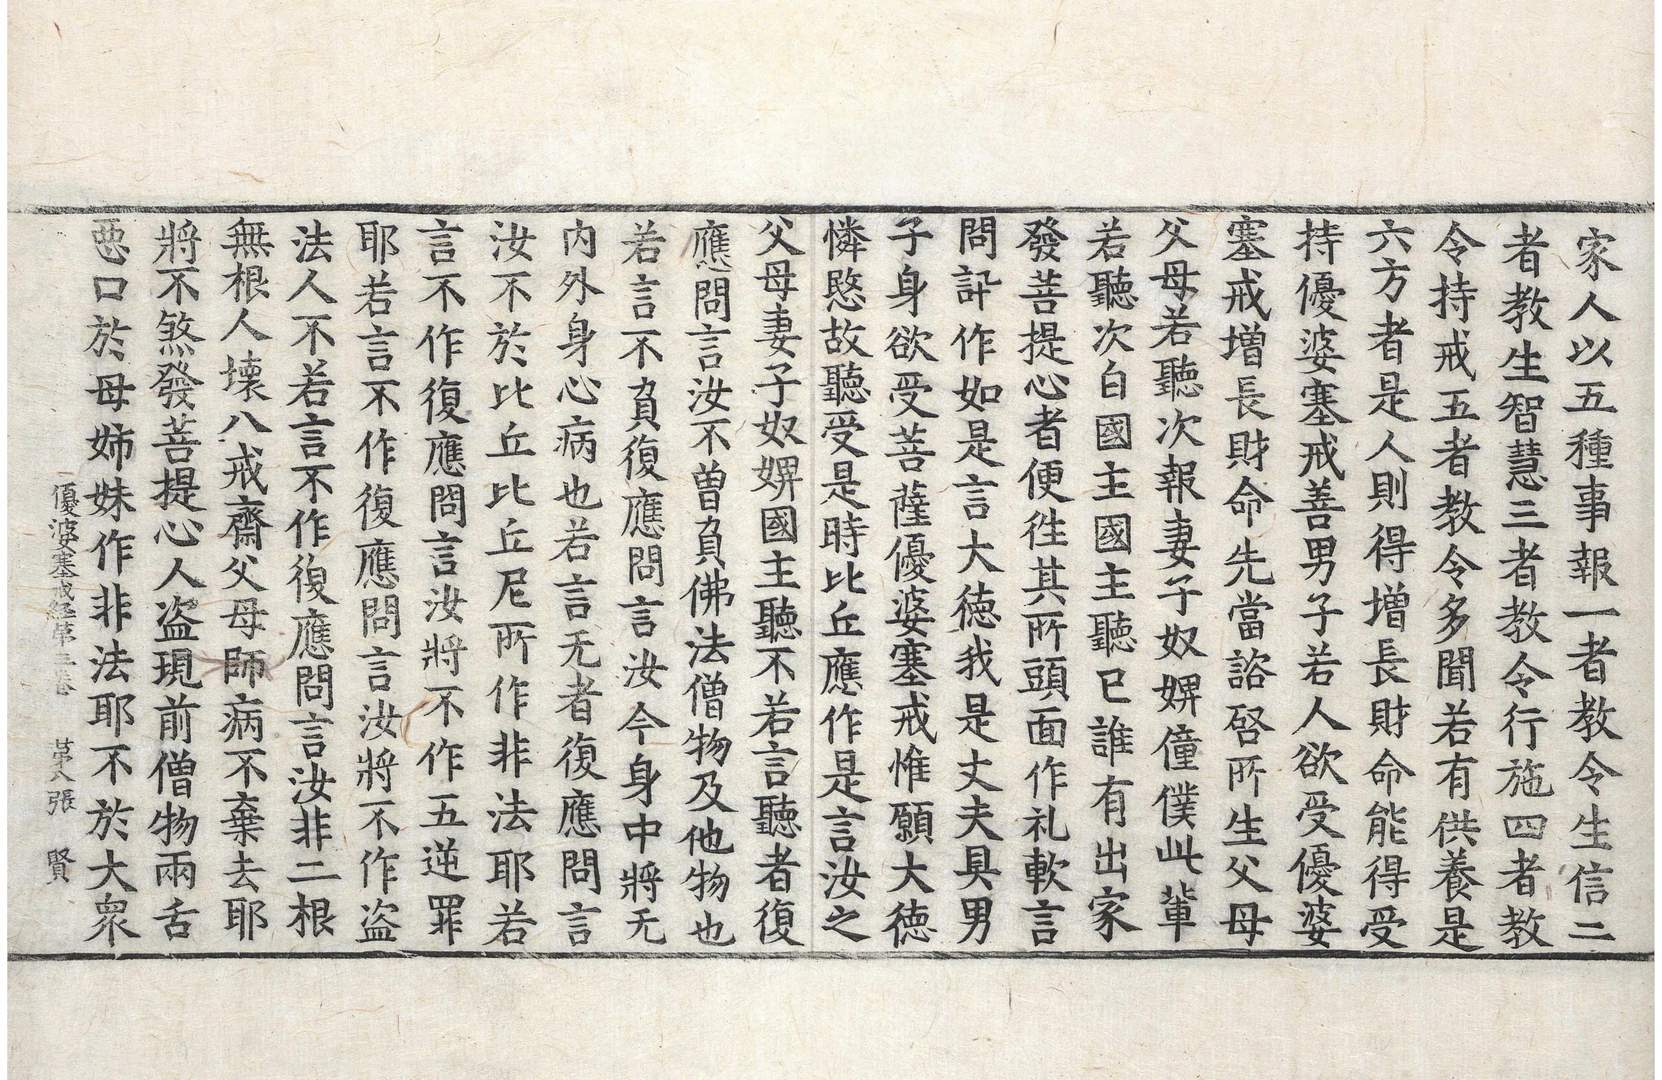 家人以五種事報一者教令生信二
者教生智慧三者教令行施四者教
令持戒五者教令多聞若有供養是
六方者是人則得增長財命能得受
持優婆塞戒善男子若人欲受優婆
塞戒增長財命先當諮啓所生父母
父母若聽次報妻子奴婢僮僕此輩
若聽次白國主國主聽已誰有出家
發菩提心者便往其所頭面作礼軟言
問訊作如是言大德我是丈夫具男
子身欲受菩薩優婆塞戒惟願大德
憐愍故聽受是時比丘應作是言汝之
父母妻子奴婢國主聽不若言聽者復
應問言汝不曾負佛法僧物及他物也
若言不負復應問言汝今身中將无
內外身心病也若言无者復應問言
汝不於比丘比丘尼所作非法耶若
言不作復應問言汝將不作五逆罪
耶若言不作復應問言汝將不作盜
法人不若言不作復應問言汝非二根
無根人壞八戒齋父母師病不棄去耶
將不煞發菩提心人盜現前僧物兩舌
惡口於母姉妹作非法耶不於大衆
優婆塞戒経第三卷 苐八張 賢